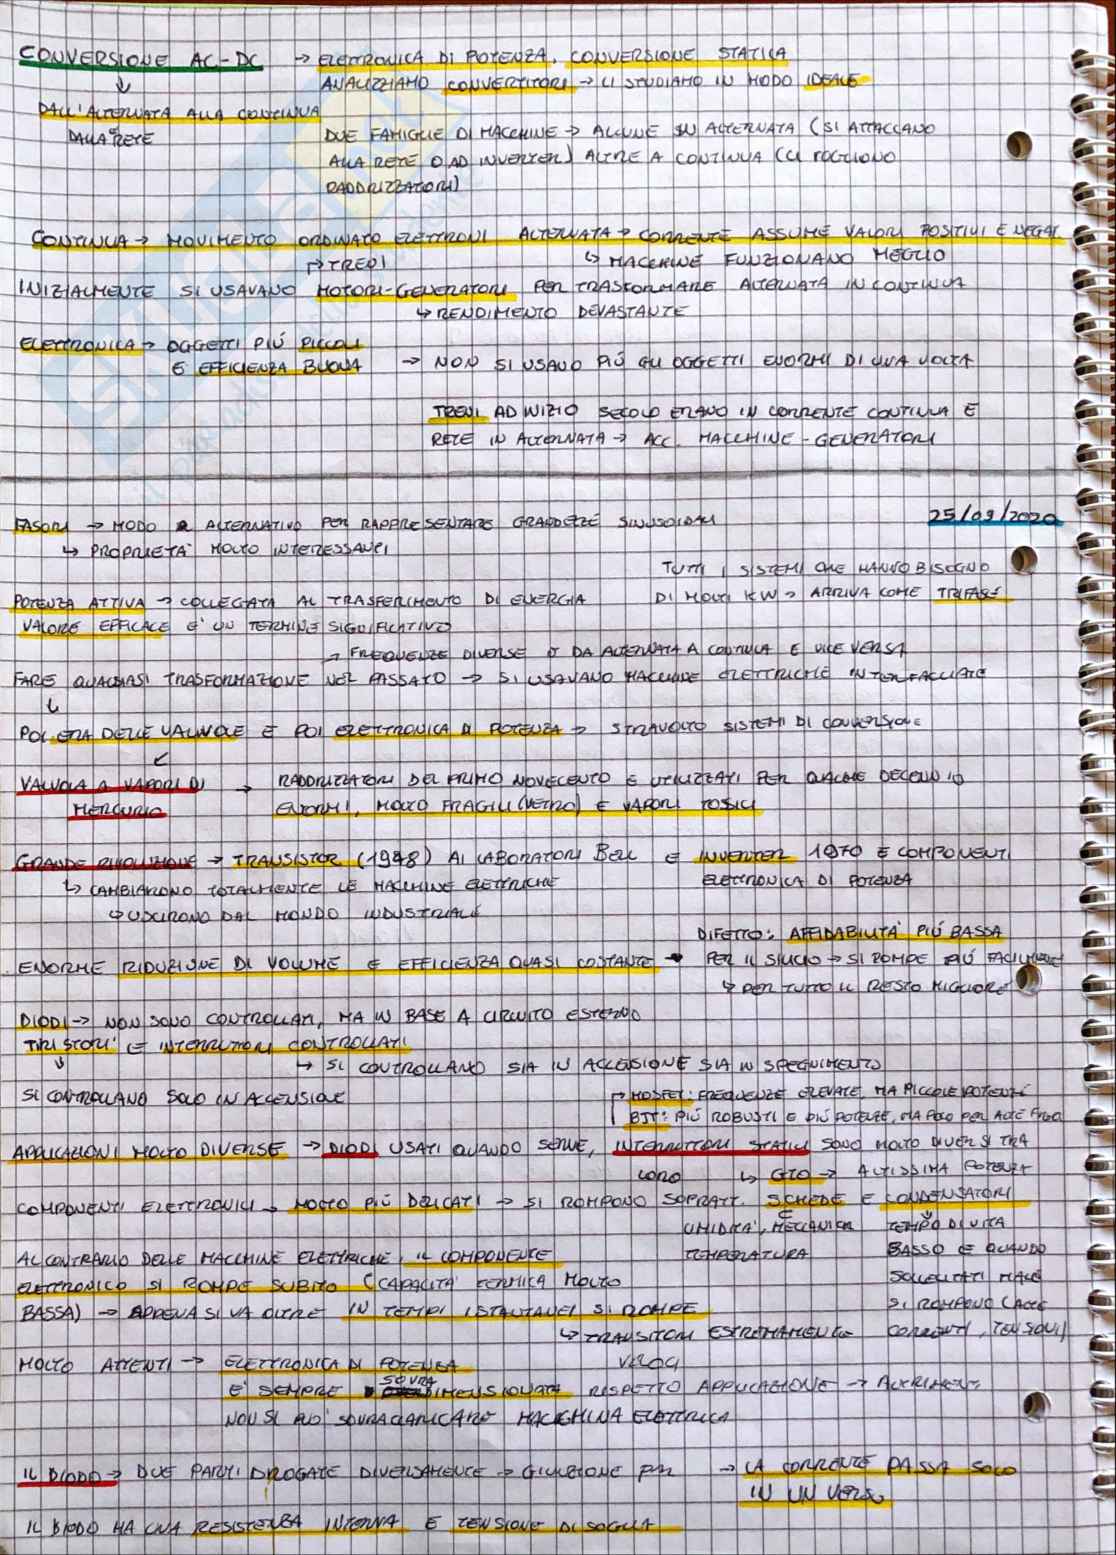 CONVERSIONE AC-DC → ELETTRONICA DI POTENZA, CONVERSIONE STATICA
ANALIZZIAMO CONVERTITORI → LI STUDIAMO IN MODO IDEALE
DALL'ALTERNATA ALLA CONTINUA
DALLA RETE
DUE FAMIGLIE DI MACCHINE → ALCUNE IN ALTERNATA (SI ATTACCANO
ALLA RETE O AD INVERTER) ALTRE A CONTINUA (CI VOGLIONO
RADDRIZZATORI)
CONTINUA → MOVIMENTO ORDINATO ELETTRONI ALTERNATA → CORRENTE ASSUME VALORI POSITIVI E NEGAT
→ TRENI ↳ MACCHINE FUNZIONANO MEGLIO
INIZIALMENTE SI USAVANO MOTORI-GENERATORI PER TRASFORMARE ALTERNATA IN CONTINUA
↳ RENDIMENTO DEVASTANTE
ELETTRONICA → OGGETTI PIÙ PICCOLI
E EFFICIENZA BUONA → NON SI USANO PIÙ GLI OGGETTI ENORMI DI UNA VOLTA
TRENI AD INIZIO SECOLO ERANO IN CORRENTE CONTINUA E
RETE IN ALTERNATA → ACC. MACCHINE-GENERATORI
25/09/2020
FASORI → MODO ALTERNATIVO PER RAPPRESENTARE GRANDEZZE SINUSOIDALI
↳ PROPRIETÀ MOLTO INTERESSANTI
TUTTI I SISTEMI CHE HANNO BISOGNO
DI MOLTI KW → ARRIVA COME TRIFASE
POTENZA ATTIVA → COLLEGATA AL TRASFERIMENTO DI ENERGIA
VALORE EFFICACE E' UN TERMINE SIGNIFICATIVO
→ FREQUENZE DIVERSE O DA ALTERNATA A CONTINUA E VICEVERSA
FARE QUALSIASI TRASFORMAZIONE NEL PASSATO → SI USAVANO MACCHINE ELETTRICHE INTERFACCIATE
POI ERA DELLE VALVOLE E POI ELETTRONICA DI POTENZA → STRAVOLTO SISTEMI DI CONVERSIONE
VALVOLA A VAPORI DI
MERCURIO
→ RADDRIZZATORI DEL PRIMO NOVECENTO E UTILIZZATI PER QUALCHE DECENNIO
ENORMI, MOLTO FRAGILI (VETRO) E VAPORI TOSSICI
GRANDE RIVOLUZIONE → TRANSISTOR (1948) AI LABORATORI BELL E INVERTER 1970 E COMPONENTI
ELETTRONICA DI POTENZA
↳ CAMBIARONO TOTALMENTE LE MACCHINE ELETTRICHE
↳ USCIRONO DAL MONDO INDUSTRIALE
DIFETTO: AFFIDABILITÀ PIÙ BASSA
ENORME RIDUZIONE DI VOLUME E EFFICIENZA QUASI COSTANTE → PER IL SILICIO → SI ROMPE PIÙ FACILMENTE
↳ PER TUTTO IL RESTO MIGLIORE
DIODI → NON SONO CONTROLLATI, MA IN BASE A CIRCUITO ESTERNO
TIRISTORI E INTERRUTTORI CONTROLLATI
↳ SI CONTROLLANO SIA IN ACCENSIONE SIA IN SPEGNIMENTO
SI CONTROLLANO SOLO IN ACCENSIONE
MOSFET: FREQUENZE ELEVATE, MA PICCOLE POTENZE
BJT: PIÙ ROBUSTI E PIÙ POTENZE, MA POCO PER ALTE FREQ
APPLICAZIONI MOLTO DIVERSE → DIODI USATI QUANDO SERVE, INTERRUTTORI STATICI SONO MOLTO DIVERSI TRA
LORO ↳ GTO → ALTISSIMA POTENZA
COMPONENTI ELETTRONICI → MOLTO PIÙ DELICATI → SI ROMPONO SOPRATT. SCHEDE E CONDENSATORI
UMIDITÀ, MECCANICA
TEMPERATURA
TEMPO DI VITA
BASSO E QUANDO
SOLLECITATI MALE
SI ROMPONO (ALTE
CORRENTI, TENSIONI)
AL CONTRARIO DELLE MACCHINE ELETTRICHE, IL COMPONENTE
ELETTRONICO SI ROMPE SUBITO (CAPACITÀ TERMICA MOLTO
BASSA) → APPENA SI VA OLTRE IN TEMPI ISTANTANEI SI ROMPE
↳ TRANSITORI ESTREMAMENTE
VELOCI
MOLTO ATTENTI → ELETTRONICA DI POTENZA
E' SEMPRE SOVRADIMENSIONATA RISPETTO APPLICAZIONE → ALTRIMENTI
NON SI PUÒ SOVRACCARICARE MACCHINA ELETTRICA
IL DIODO → DUE PARTI DROGATE DIVERSAMENTE → GIUNZIONE PN → LA CORRENTE PASSA SOLO
IN UN VERSO
IL DIODO HA UNA RESISTENZA INTERNA E TENSIONE DI SOGLIA